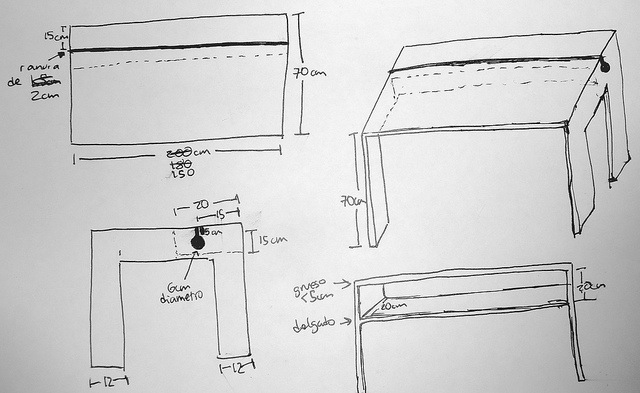 15cm
ranura
de 15cm
2cm
70cm
200cm
180
150
20
15
5cm
15cm
6cm
diametro
12
12
70cm
grueso
<5cm
delgado
20cm
20cm